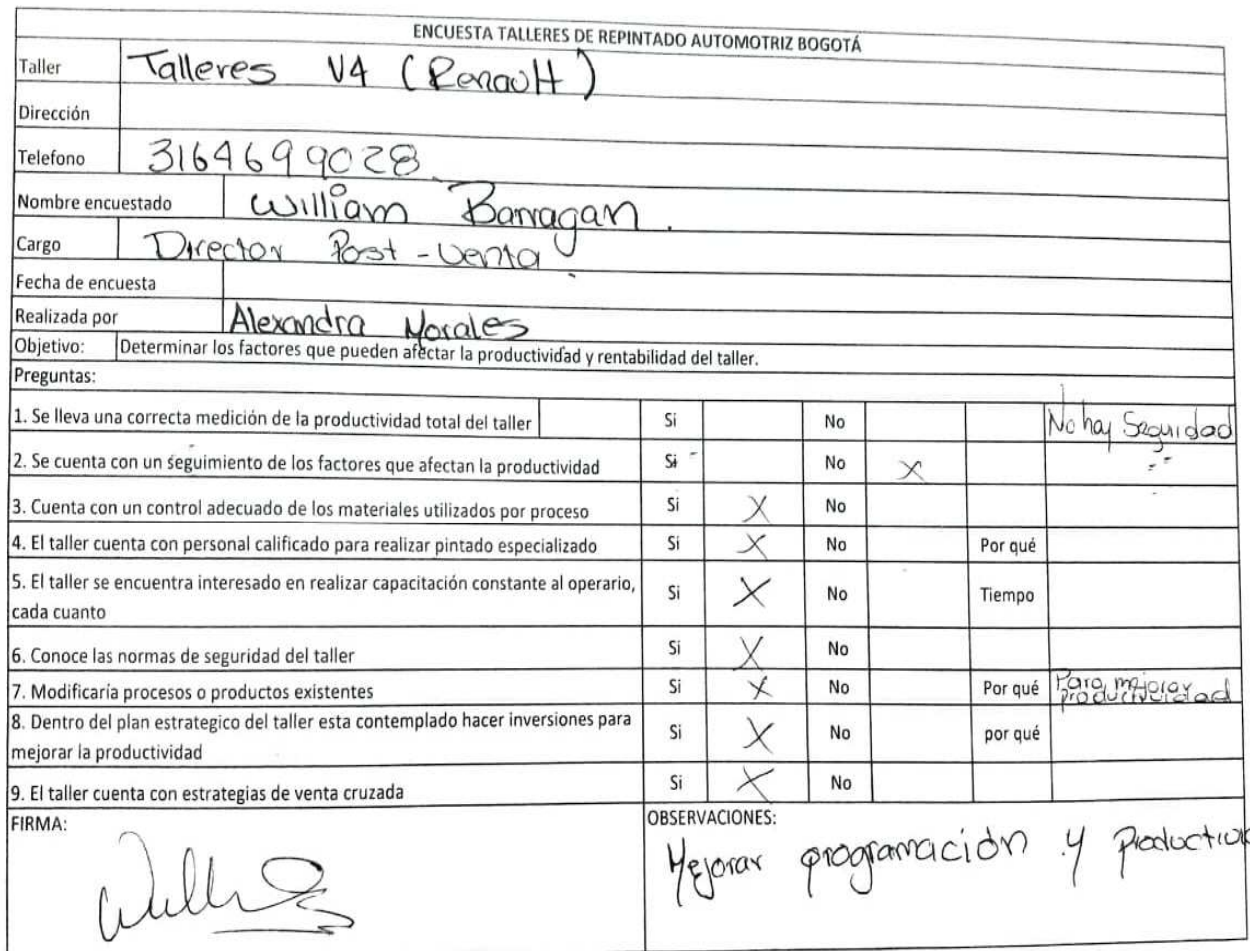 ENCUESTA TALLERES DE REPINTADO AUTOMOTRIZ BOGOTÁ
Taller Talleres V4 (Renault)
Dirección
Telefono 3164699028
Nombre encuestado William Barragan.
Cargo Director Post-Venta
Fecha de encuesta
Realizada por Alexandra Morales
Objetivo: Determinar los factores que pueden afectar la productividad y rentabilidad del taller.
Preguntas:
1. Se lleva una correcta medición de la productividad total del taller Si No No hay Seguridad
2. Se cuenta con un seguimiento de los factores que afectan la productividad Si No X
3. Cuenta con un control adecuado de los materiales utilizados por proceso Si X No
4. El taller cuenta con personal calificado para realizar pintado especializado Si X No Por qué
5. El taller se encuentra interesado en realizar capacitación constante al operario,
cada cuanto Si X No Tiempo
6. Conoce las normas de seguridad del taller Si X No
7. Modificaría procesos o productos existentes Si X No Por qué Para mejorar
productividad
8. Dentro del plan estrategico del taller esta contemplado hacer inversiones para
mejorar la productividad Si X No por qué
9. El taller cuenta con estrategias de venta cruzada Si X No
FIRMA:
OBSERVACIONES:
Mejorar programación y Productivid